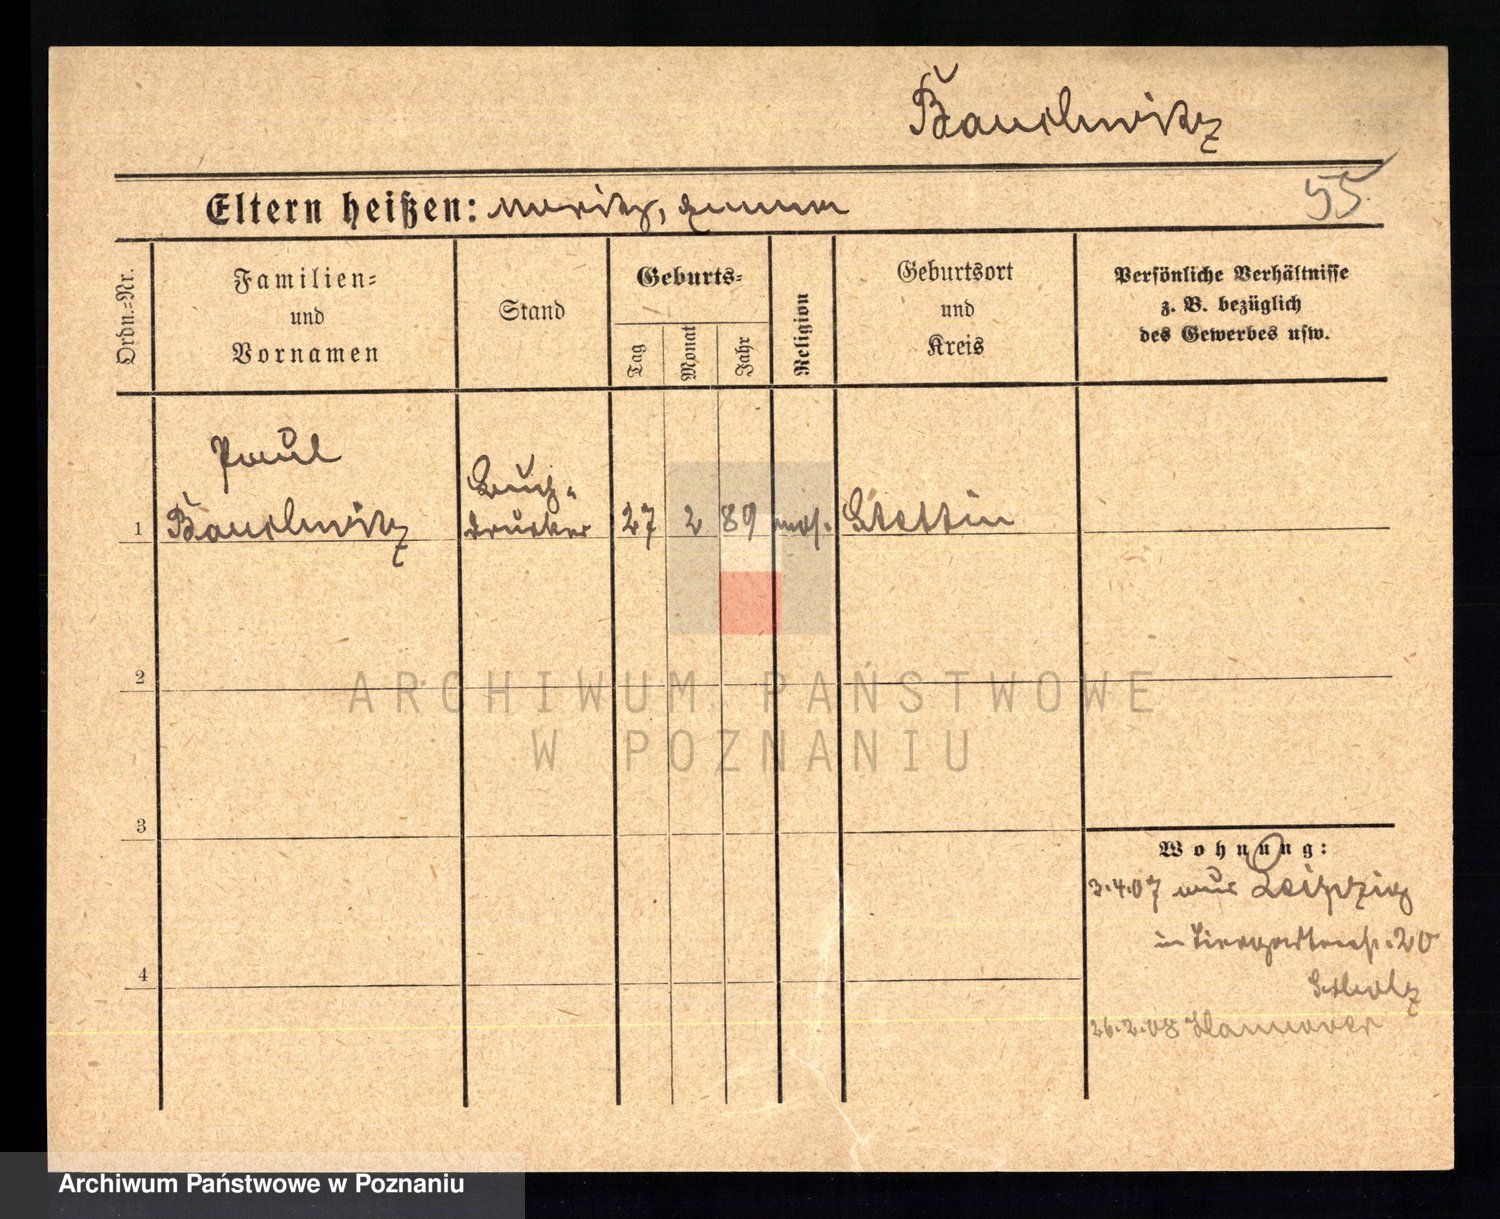 Bauchwitz
Eltern heißen: Moritz, Emma
55
Ordn.=Nr.
Familien=
und
Vornamen
Stand
Geburts=
Tag
Monat
Jahr
Religion
Geburtsort
und
Kreis
Persönliche Verhältnisse
z. B. bezüglich
des Gewerbes usw.
Paul
Buch-
1 Bauchwitz drucker 27 2 89 mos. Stettin
2
ARCHIWUM PAŃSTWOWE
W POZNANIU
3
Wohnung:
3.4.07 aus Leipzig
in 20
Scholz
26.2.08 Hannover
4
Archiwum Państwowe w Poznaniu